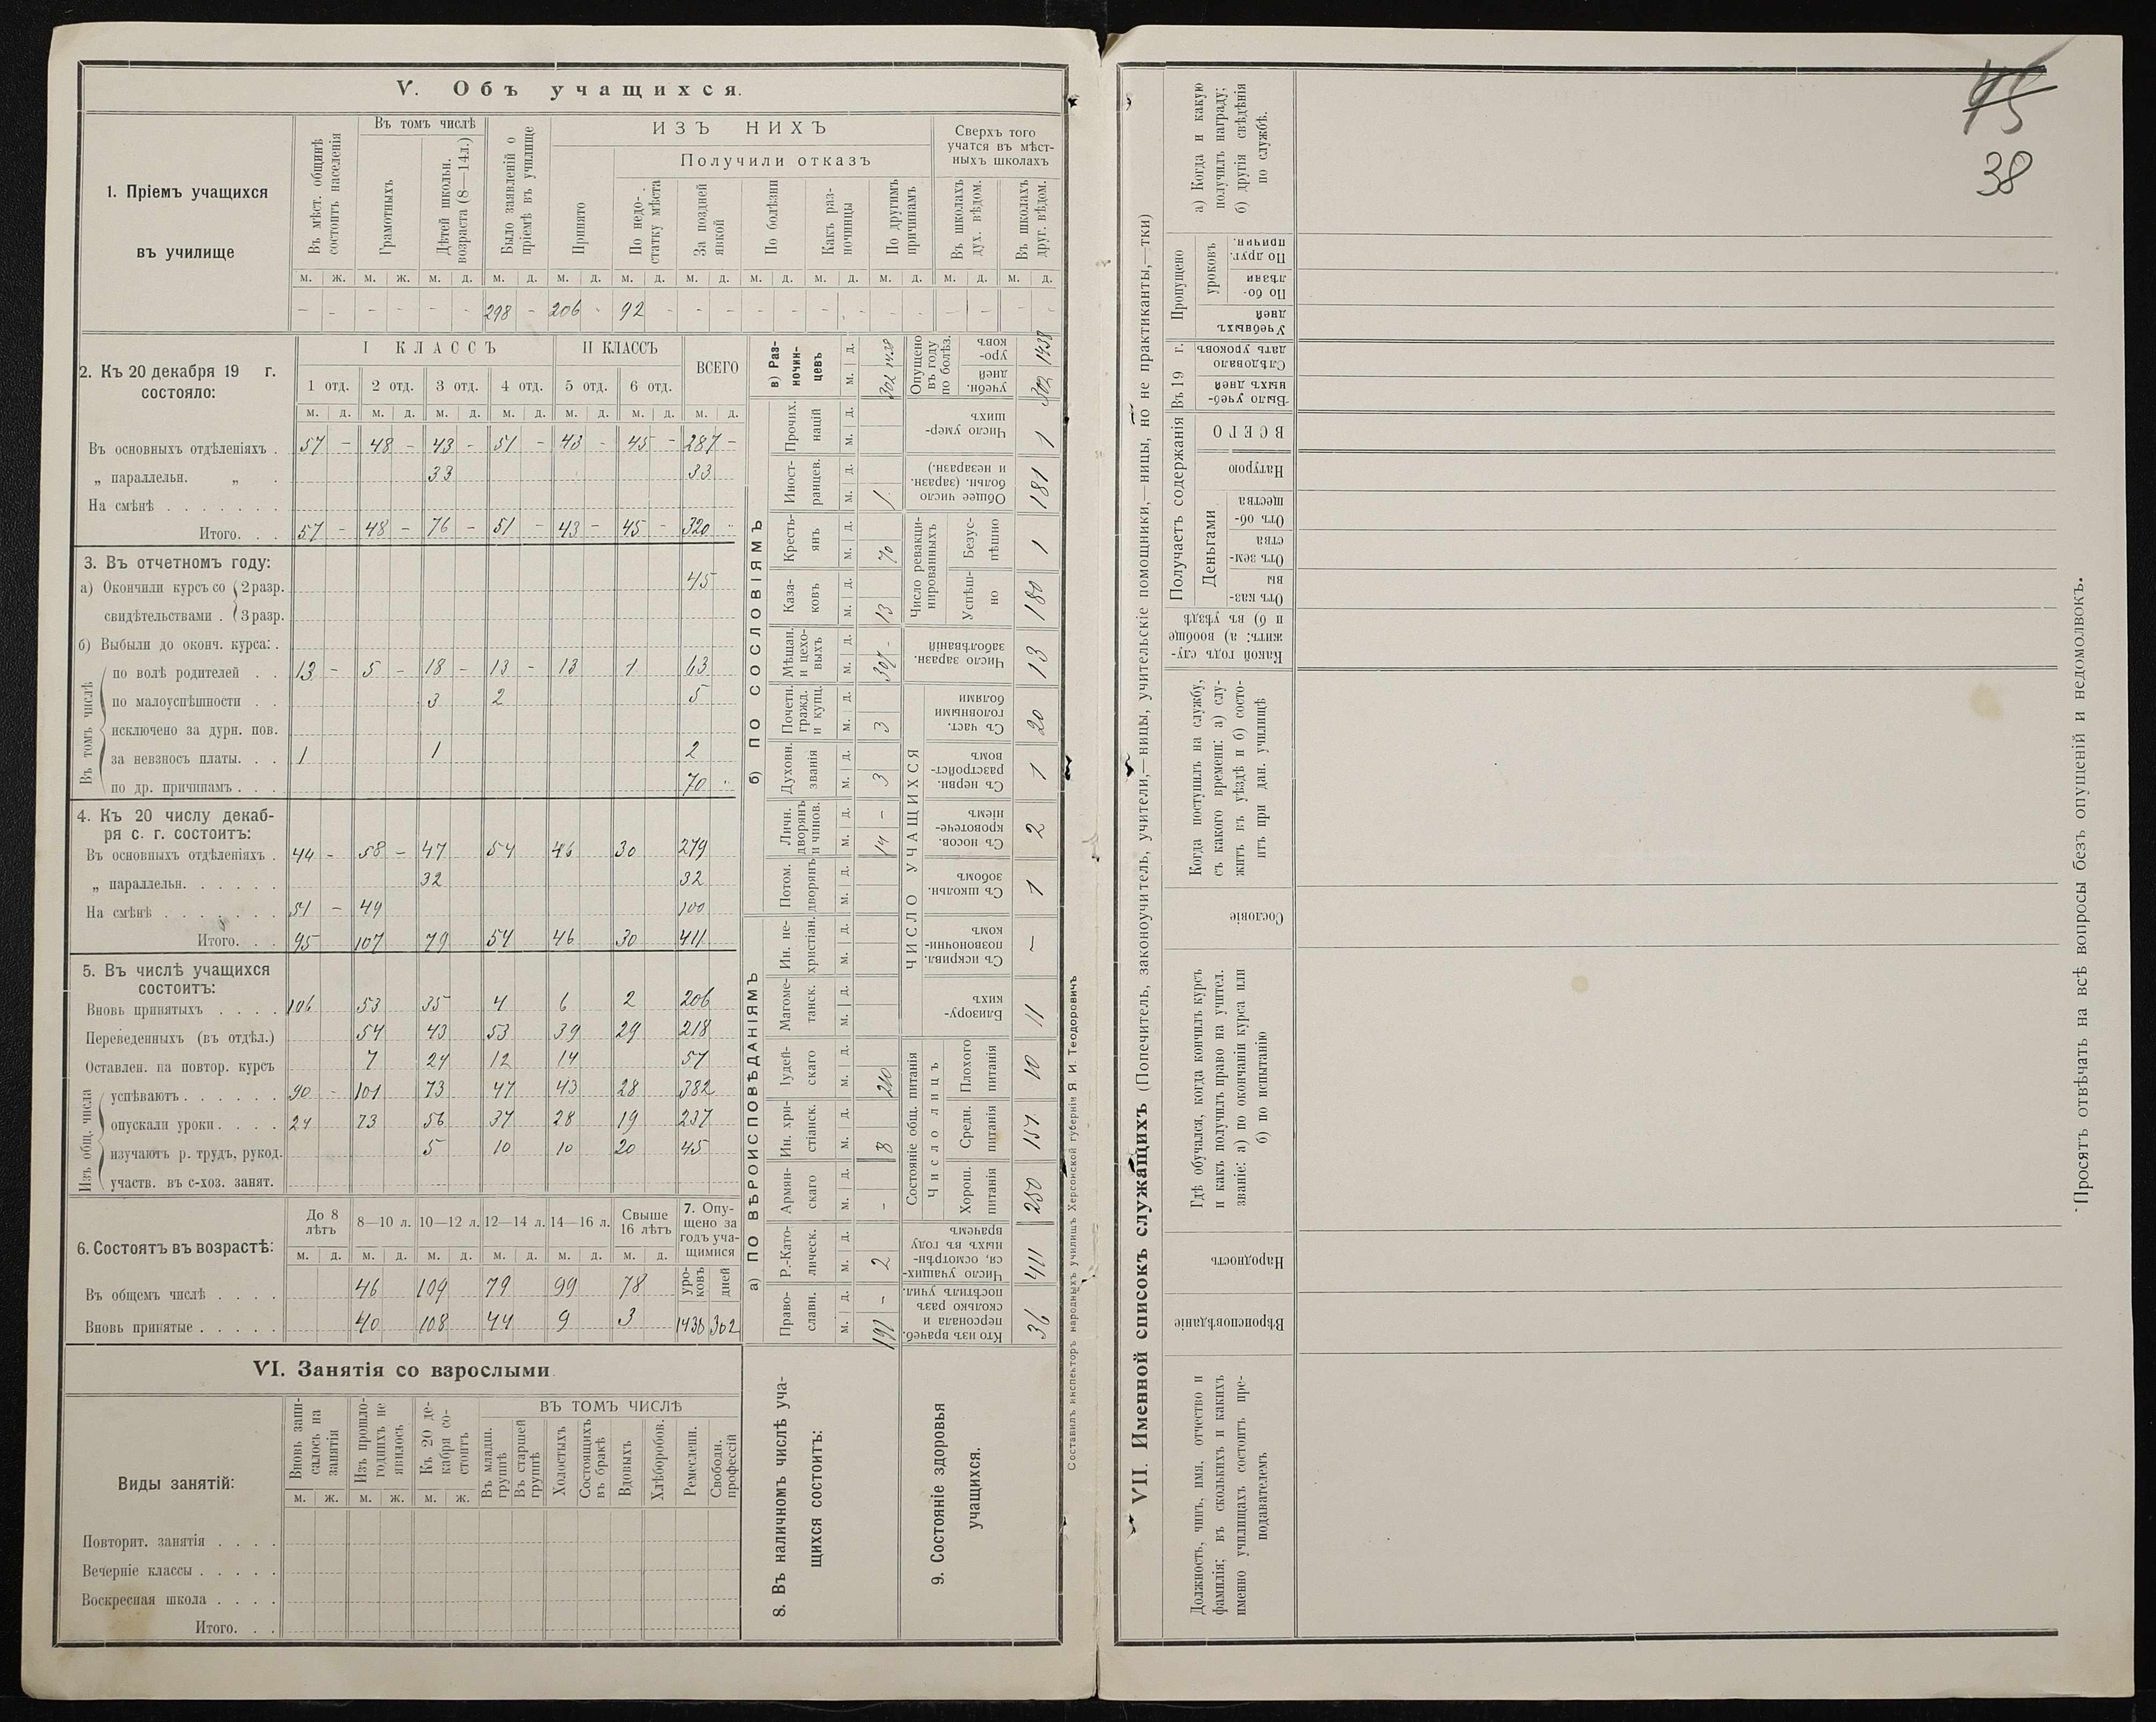 V. Объ учащихся.
1. Пріемъ учащихся
въ училище
Въ мѣст. общинѣ
состоитъ населенія
Въ томъ числѣ
Грамотныхъ
Дѣтей школьн.
возраста (8—14л.)
Было заявленій о
пріемѣ въ училище
ИЗЪ НИХЪ
Принято
Получили отказъ
По недо-
статку мѣста
За поздней
явкой
По болѣзни
Какъ раз-
ночинцы
По другимъ
причинамъ
Сверхъ того
учатся въ мѣст-
ныхъ школахъ
Въ школахъ
дух. вѣдом.
Въ школахъ
друг. вѣдом.
м. ж. м. ж. м. д. м. д. м. д. м. д. м. д. м. д. м. д. м. д. м. д. м. д.
- - - - - - 298 - 206 - 92 - - - - - - - - - - - - -
2. Къ 20 декабря 19 г.
состояло:
I КЛАССЪ II КЛАССЪ ВСЕГО
1 отд. 2 отд. 3 отд. 4 отд. 5 отд. 6 отд.
м. д. м. д. м. д. м. д. м. д. м. д. м. д.
Въ основныхъ отдѣленіяхъ . 57 - 48 - 43 - 51 - 43 - 45 - 287 -
„ параллельн. „ . 33 33
На смѣнѣ . . . . . . .
Итого. . . 57 - 48 - 76 - 51 - 43 - 45 - 320 -
3. Въ отчетномъ году:
а) Окончили курсъ со 2 разр. 45
свидѣтельствами . 3 разр.
б) Выбыли до оконч. курса: .
Въ томъ числѣ
по волѣ родителей . . 13 - 5 - 18 - 13 - 13 1 63
по малоуспѣшности . . 3 2 5
исключено за дурн. пов.
за невзносъ платы. . . 1 1 2
по др. причинамъ . . . 70
4. Къ 20 числу декаб-
ря с. г. состоитъ:
Въ основныхъ отдѣленіяхъ . 44 - 58 - 47 54 46 30 279
„ параллельн. . . . . . 32 32
На смѣнѣ . . . . . . . 51 - 49 100
Итого. . . 95 107 79 54 46 30 411
5. Въ числѣ учащихся
состоитъ:
Вновь принятыхъ . . . . 106 53 35 4 6 2 206
Переведенныхъ (въ отдѣл.) 54 43 53 39 29 218
Оставлен. на повтор. курсъ 7 24 12 14 57
Изъ общ. числа
успѣваютъ . . . . . . 90 - 101 73 47 43 28 382
опускали уроки . . . . 24 73 56 37 28 19 237
изучаютъ р. трудъ, рукод. 5 10 10 20 45
участв. въ с-хоз. занят.
6. Состоятъ въ возрастѣ:
До 8
лѣтъ
8—10 л. 10—12 л. 12—14 л. 14—16 л.
Свыше
16 лѣтъ
7. Опу-
щено за
годъ уча-
щимися
м. д. м. д. м. д. м. д. м. д. м. д.
уро-
ковъ
дней
Въ общемъ числѣ . . . . 46 109 79 99 78
Вновь принятые . . . . . 40 108 44 9 3 1438 302
VI. Занятія со взрослыми.
Виды занятій:
Вновь запи-
салось на
занятія
Изъ прошло-
годнихъ не
явилось
Къ 20 де-
кабря со-
стоитъ
ВЪ ТОМЪ ЧИСЛѢ
Въ младш.
группѣ
Въ старшей
группѣ
Холостыхъ
Состоящихъ
въ бракѣ
Вдовыхъ
Хлѣборобов.
Ремесленн.
Свободн.
профессій
м. ж. м. ж. м. ж.
Повторит. занятія . . . .
Вечерніе классы . . . . .
Воскресная школа . . . .
Итого. . .
8. Въ наличномъ числѣ уча-
щихся состоитъ:
а) ПО ВѢРОИСПОВѢДАНІЯМЪ
Право-
славн.
м. д.
191 -
Р.-Като-
лическ.
м. д.
2
Армян-
скаго
м. д.
-
Ин. хри-
стіанск.
м. д.
8
Іудей-
скаго
м. д.
210
Магоме-
танск.
м. д.
Ин. не-
христіан.
м. д.
б) ПО СОСЛОВІЯМЪ
Потом.
дворянъ
м. д.
Личн.
дворянъ
и чинов.
м. д.
14 -
Духовн.
званія
м. д.
3
Почетн.
гражд.
и купц.
м. д.
3
Мѣщан.
и цехо-
выхъ
м. д.
307 -
Каза-
ковъ
м. д.
13
Кресть-
янъ
м. д.
70
Иност-
ранцев.
м. д.
1
Прочих.
націй
м. д.
в) Раз-
ночин-
цевъ
м. д.
302 1438
9. Состояніе здоровья
учащихся.
Кто изъ врачеб.
персонала и
сколько разъ
посѣтилъ учил.
36
Число учащих-
ся, осмотрѣн-
ныхъ въ году
врачемъ
411
Состояніе общ. питанія
Число лицъ
Хорош.
питанія
250
Средн.
питанія
151
Плохого
питанія
10
ЧИСЛО УЧАЩИХСЯ
Близору-
кихъ
11
Съ искривл.
позвоночни-
комъ
-
Съ школьн.
зобомъ
1
Съ носов.
кровотече-
ніемъ
2
Съ нервн.
разстройст-
вомъ
1
Съ част.
головными
болями
20
Число заразн.
заболѣваній
13
Число ревакци-
нированныхъ
Успѣш-
но
180
Безус-
пѣшно
1
Общее число
больн. (заразн.
и незаразн.)
181
Число умер-
шихъ
1
Опущено
въ году
по болѣз.
учебн.
дней
302
уро-
ковъ
1438
Составилъ инспекторъ народныхъ училищъ Херсонской губерніи Я. И. Теодоровичъ
45
38
VII. Именной списокъ служащихъ (Попечитель, законоучитель, учители,—ницы, учительскіе помощники,—ницы, но не практиканты,—тки)
Должность, чинъ, имя, отчество и
фамилія; въ сколькихъ и какихъ
именно училищахъ состоитъ пре-
подавателемъ
Вѣроисповѣданіе
Народность
Гдѣ обучался, когда кончилъ курсъ
и какъ получилъ право на учител.
званіе: а) по окончаніи курса или
б) по испытанію
Сословіе
Когда поступилъ на службу,
съ какого времени: а) слу-
житъ въ уѣздѣ и б) состо-
итъ при дан. училищѣ
Какой годъ слу-
житъ: а) вообще
и б) въ уѣздѣ
Получаетъ содержанія
Деньгами
Отъ каз-
ны
Отъ зем-
ства
Отъ об-
щества
Натурою
ВСЕГО
Въ 19 г.
Было учеб-
ныхъ дней
Слѣдовало
дать уроковъ
Пропущено
Учебныхъ
дней
уроковъ
По бо-
лѣзни
По друг.
причин.
а) Когда и какую
получилъ награду;
б) другія свѣдѣнія
по службѣ.
Просятъ отвѣчать на всѣ вопросы безъ опущеній и недомолвокъ.